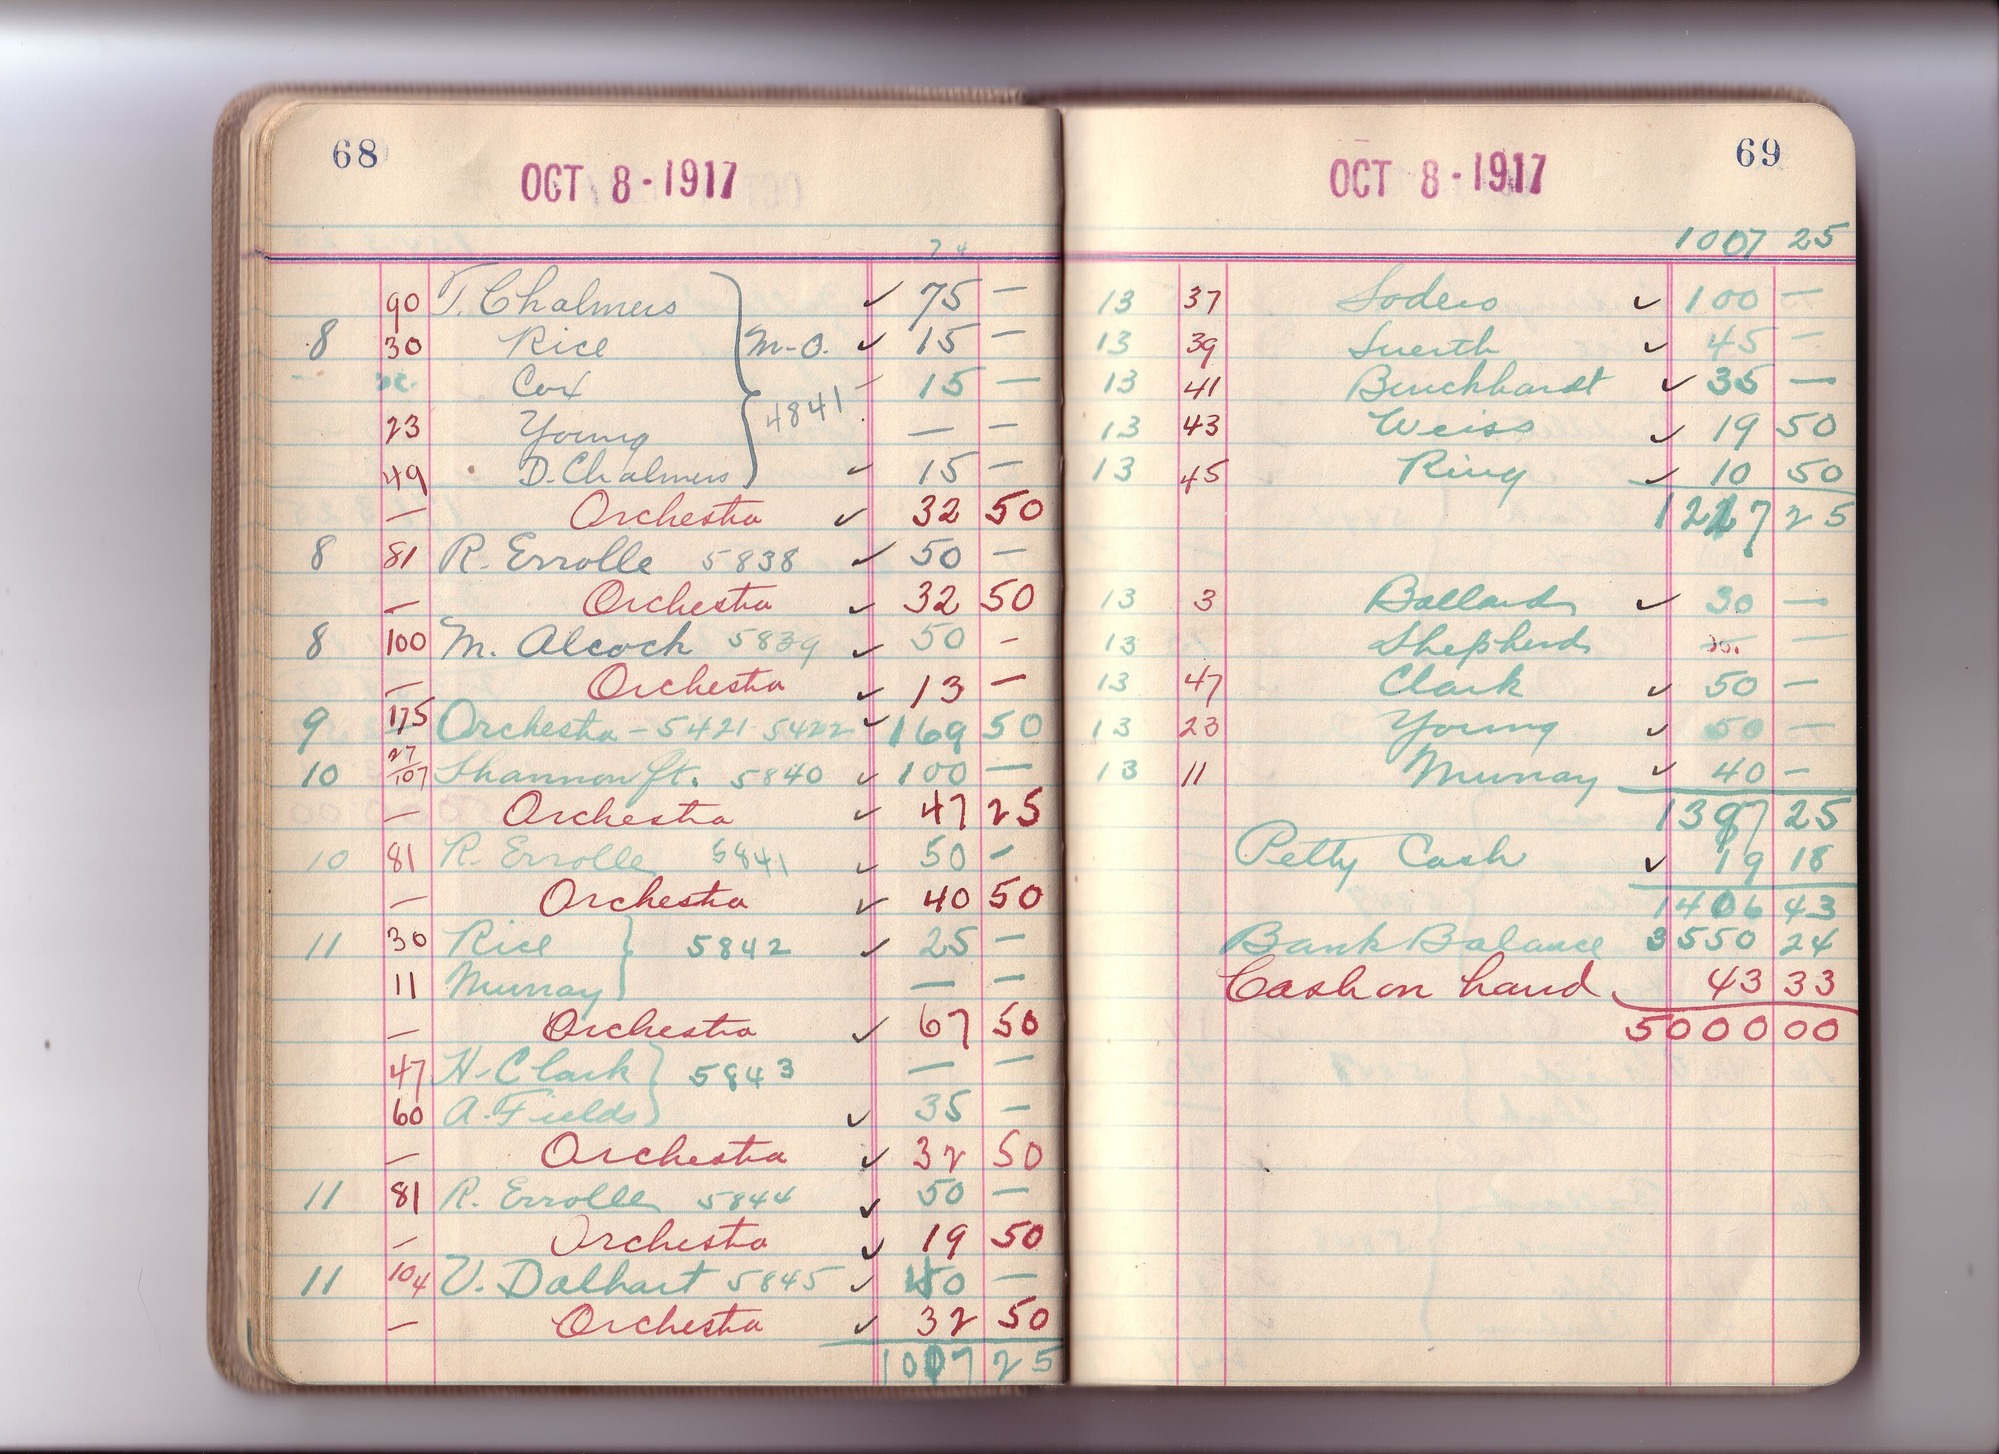 68
OCT 8 - 1917
74
90 T. Chalmers ✓ 75 —
8 30 Rice M-O. ✓ 15 —
Cox 4841 — 15 —
23 Young — —
49 D. Chalmers ✓ 15 —
— Orchestra ✓ 32 50
8 81 R. Errolle 5838 ✓ 50 —
— Orchestra ✓ 32 50
8 100 M. Alcock 5839 ✓ 50 —
— Orchestra ✓ 13 —
9 175 Orchestra - 5421-5422 ✓ 169 50
10 27/107 Shannon ft. 5840 ✓ 100 —
— Orchestra ✓ 47 25
10 81 R. Errolle 5841 ✓ 50 —
— Orchestra ✓ 40 50
11 30 Rice 5842 ✓ 25 —
11 Murray — —
— Orchestra ✓ 67 50
47 H. Clark 5843 — —
60 A. Fields ✓ 35 —
— Orchestra ✓ 32 50
11 81 R. Errolle 5844 ✓ 50 —
— Orchestra ✓ 19 50
11 104 V. Dalhart 5845 ✓ —
— Orchestra ✓ 32 50
1007 25
69
OCT 8 - 1917
1007 25
13 37 Soders ✓ 100 —
13 39 Suerth ✓ 45 —
13 41 Burckhardt ✓ 35 —
13 43 Weiss ✓ 19 50
13 45 Ring ✓ 10 50
1217 25
13 3 Ballard ✓ 30 —
13 Shepherd —
13 47 Clark ✓ 50 —
13 23 Young ✓ 50 —
13 11 Murray ✓ 40 —
1387 25
Petty Cash ✓ 19 18
1406 43
Bank Balance 3550 24
Cash on hand 43 33
5000 00